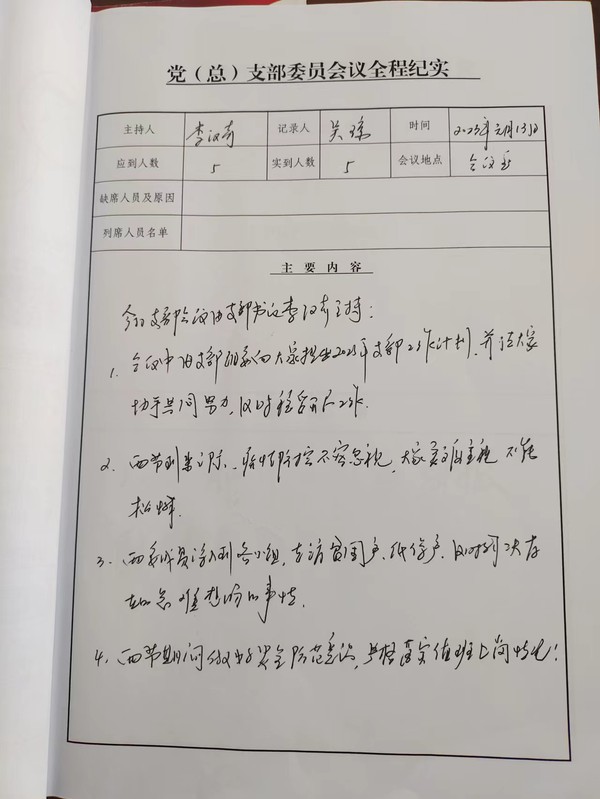 党（总）支部委员会议全程纪实
主持人 李汉奇 记录人 吴琼 时间 2023年元月13日
应到人数 5 实到人数 5 会议地点 会议室
缺席人员及原因
列席人员名单
主要内容
今日支部会议由支部书记李汉奇主持：
1. 会议中由支部组委向大家提出2023年支部工作计划，并请大家
协手共同努力，及时程
2. 两节到来之际，疫情防控不容忽视，大家要 不能
松懈
3. 两委成员深入到各小组，走访贫困户、低保户，及时解决存
在的急难愁盼的事情.
4. 两节期间做好安全防范意识， 落实值班上岗情况！